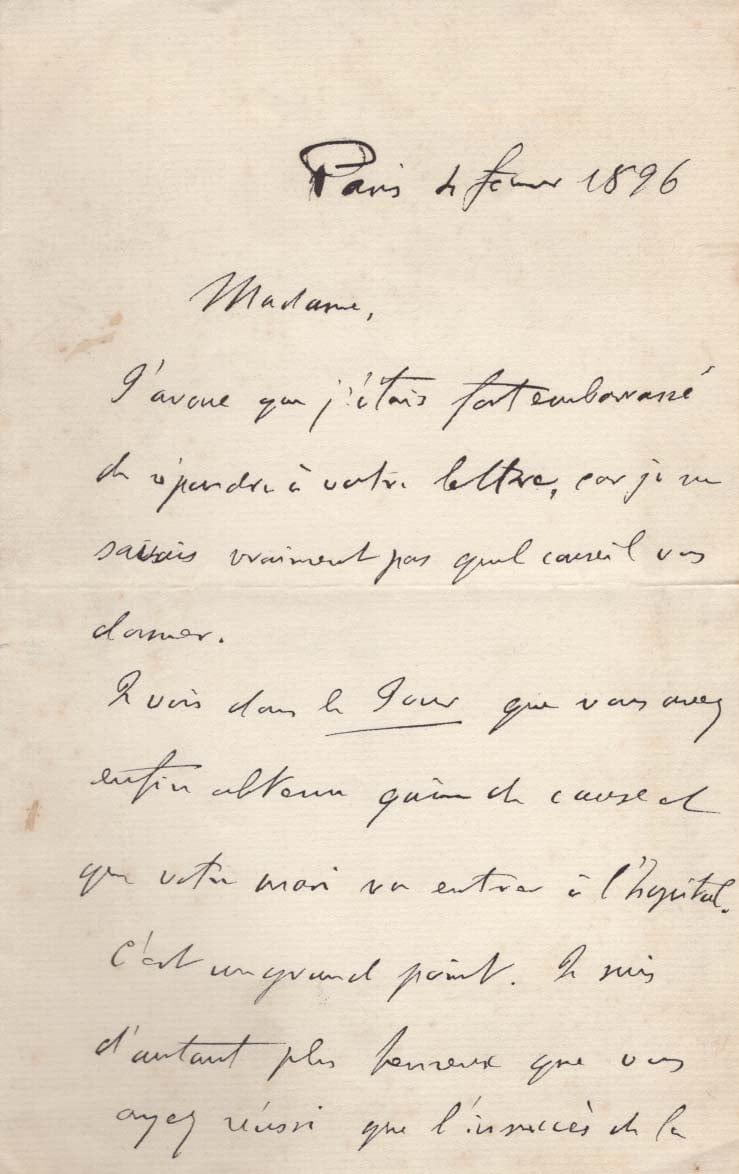 Paris 4 février 1896
Madame,
J'avoue que j'étais fort embarrassé
de répondre à votre lettre, car je ne
savais vraiment pas quel conseil vous
donner.
Je vois dans le Jour que vous avez
enfin obtenu gain de cause et
que votre mari va entrer à l'hôpital.
C'est un grand point. Je suis
d'autant plus heureux que vous
ayez réussi que l'insuccès de la